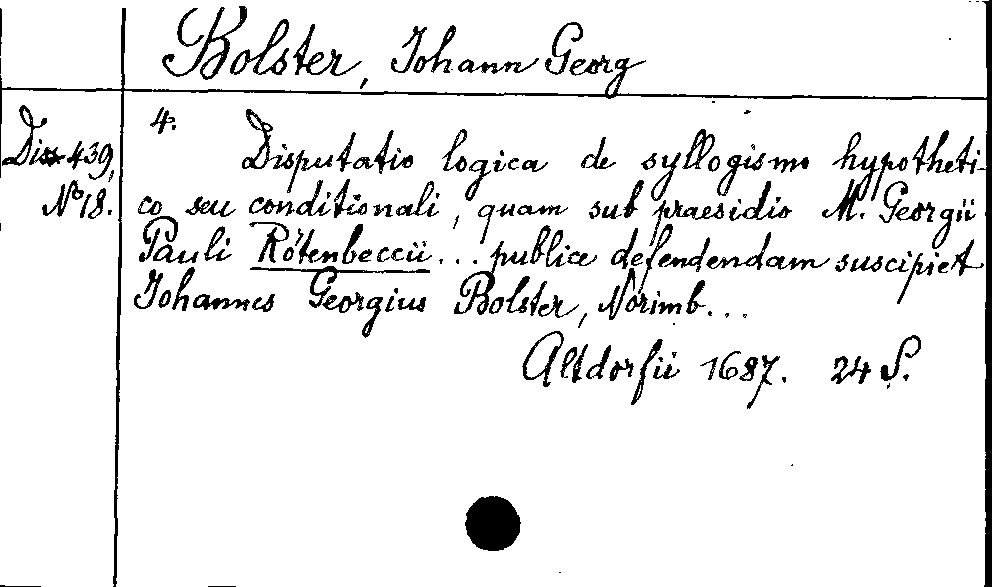 Bolster, Johann Georg
Diss 439,
No 18.
4.
Disputatio logica de syllogismo hypotheti-
co seu conditionali, quam sub praesidio M. Georgii
Pauli Rötenbeccii... publice defendendam suscipiet
Johannes Georgius Bolster, Norimb...
Altdorfii 1687. 24 S.